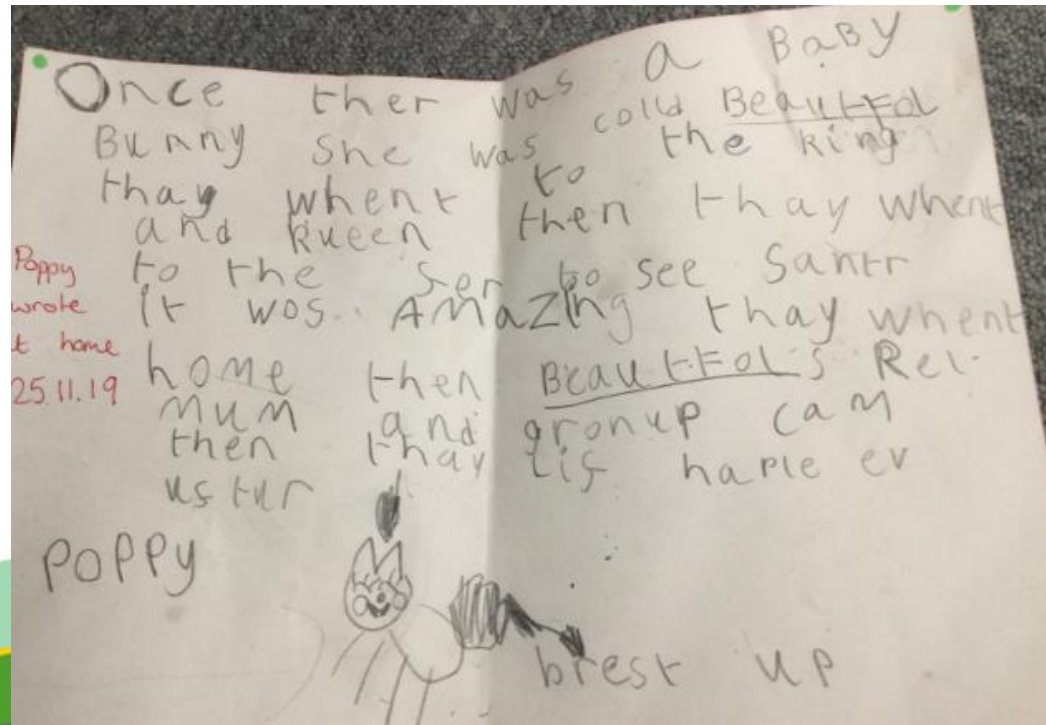 Once ther was a BaBY
Bunny She was colld BeautFol
thay whent to the king
and kueen then thay whent
to the to see Santr
it wos AMaZing thay whent
home then BeautFol's Rel
mum and gronup cam
then thay lif haple ev
us tur
Poppy
wrote
t home
25.11.19
PoPPy
brest up